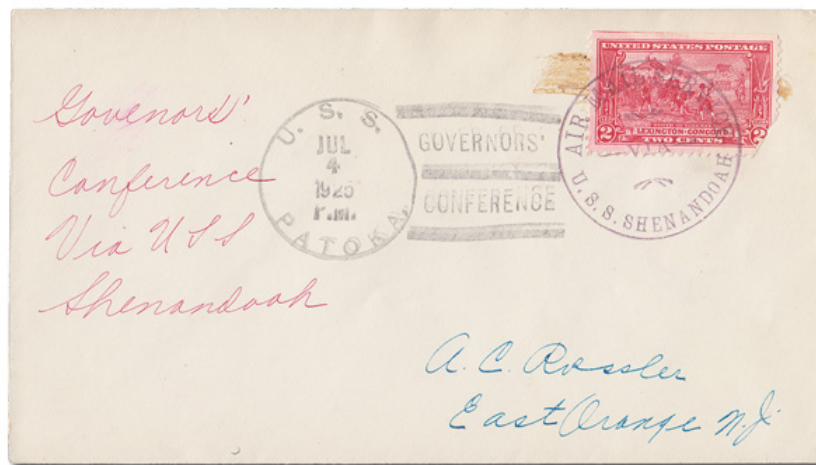 Govenors'
Conference
Via USS
Shenandoah
U. S. S.
JUL
4
1925
P.M.
PATOKA.
GOVERNORS'
CONFERENCE
UNITED STATES POSTAGE
2 LEXINGTON-CONCORD 2
TWO CENTS
AIR
VIA
U.S.S. SHENANDOAH
A. C. Rossler
East Orange N.J.